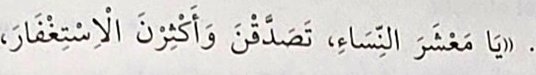 . «يَا مَعْشَرَ النِّسَاءِ، تَصَدَّقْنَ وَأَكْثِرْنَ الْاِسْتِغْفَارَ،